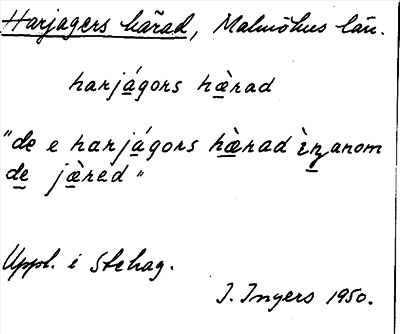 Harjagers härad, Malmöhus län.
harjágors hæ̀rad
"de e harjágors hæ̀rad ìnanom
de jæ̀red"
Uppl. i Stehag.
I. Ingers 1950.